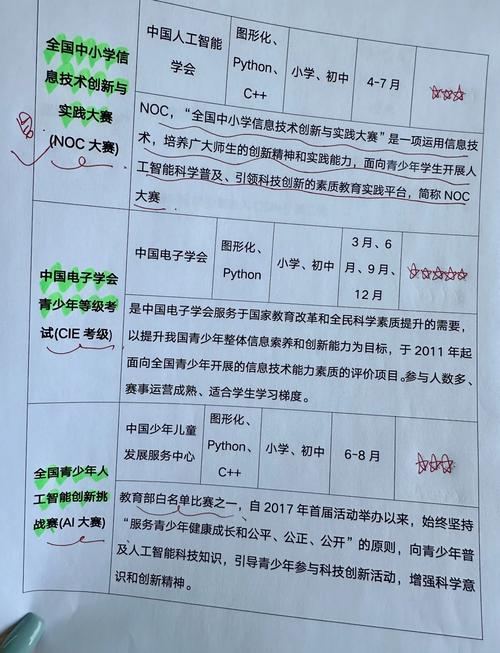 全国中小学信
息技术创新与
实践大赛
(NOC 大赛)
中国人工智能
学会
图形化、
Python、
C++
小学、初中
4-7月
NOC，“全国中小学信息技术创新与实践大赛”是一项运用信息技
术，培养广大师生的创新精神和实践能力，面向青少年学生开展人
工智能科学普及、引领科技创新的素质教育实践平台，简称 NOC
大赛
中国电子学会
青少年等级考
试(CIE 考级)
中国电子学会
图形化、
Python
小学、初中
3月、6
月、9月、
12月
是中国电子学会服务于国家教育改革和全民科学素质提升的需要，
以提升我国青少年整体信息素养和创新能力为目标，于 2011 年起
面向全国青少年开展的信息技术能力素质的评价项目。参与人数多、
赛事运营成熟、适合学生学习梯度。
全国青少年人
工智能创新挑
战赛(AI 大赛)
中国少年儿童
发展服务中心
图形化、
Python、
C++
小学、初中
6-8月
教育部白名单比赛之一，自 2017 年首届活动举办以来，始终坚持
“服务青少年健康成长和公平、公正、公开”的原则，向青少年普
及人工智能科技知识，引导青少年参与科技创新活动，增强科学意
识和创新精神。